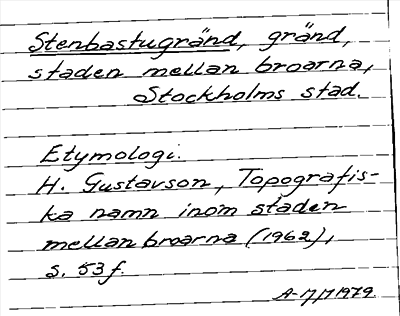 Stenbastugränd, gränd,
staden mellan broarna,
Stockholms stad.
Etymologi:
H. Gustavson, Topografis-
ka namn inom staden
mellan broarna (1962),
s. 53 f.
1979